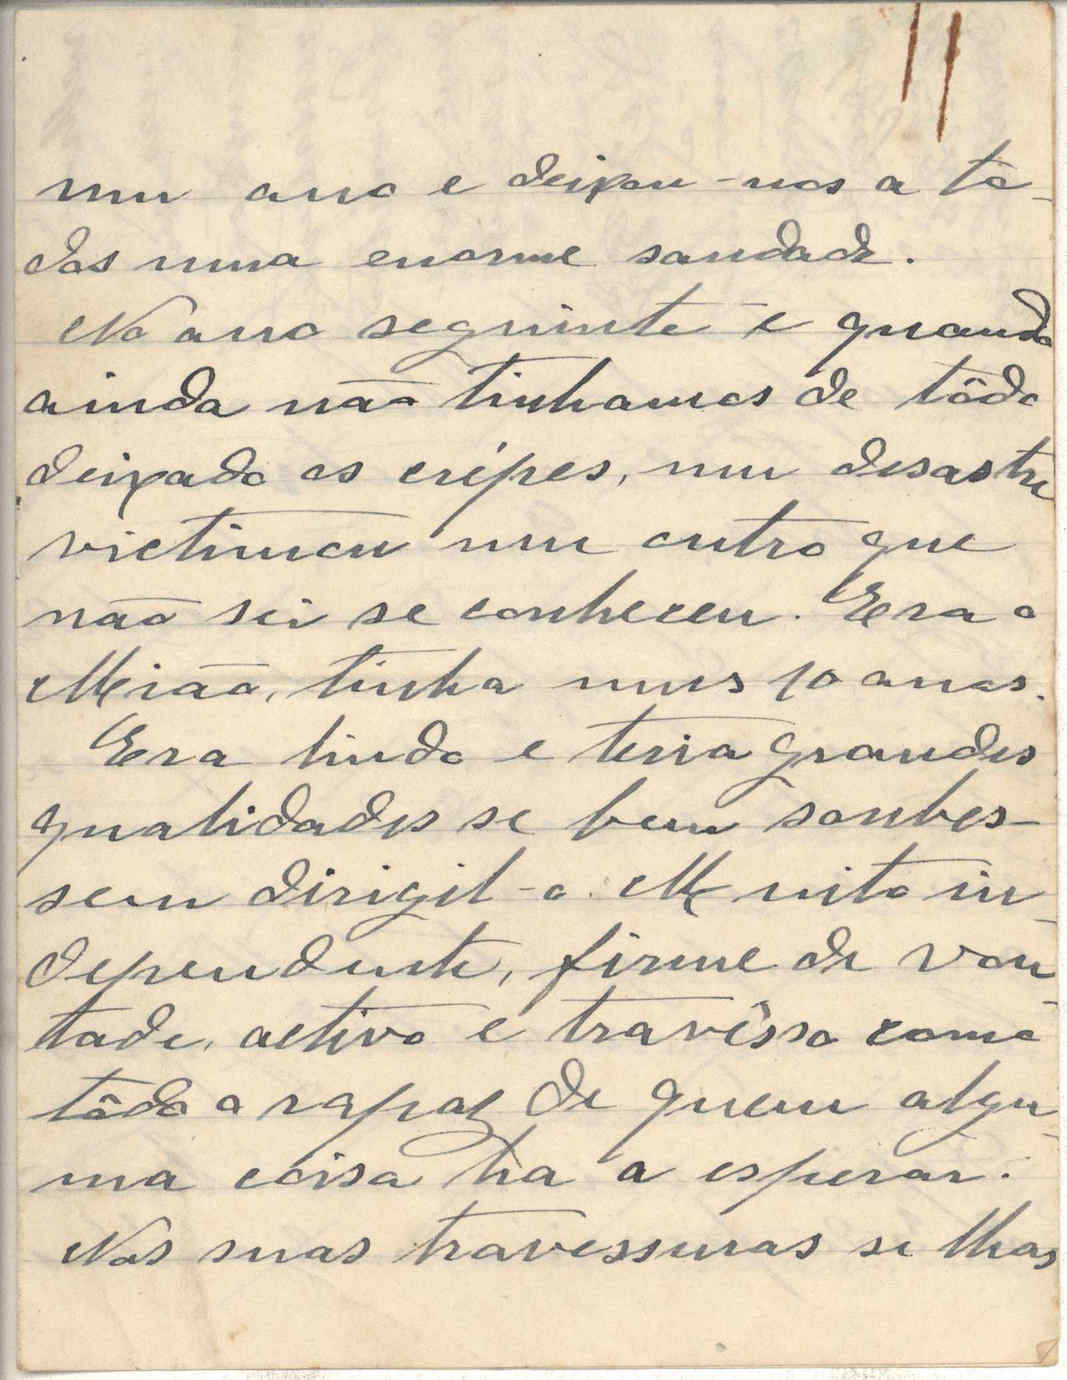 11
um ano e deixou-nos a to-
dos uma enorme saudade.
No ano seguinte e quando
ainda não tinhamos de tôdo
deixado os crépes, um desastre
victimou um outro que
não sei se conheceu. Era o
Mião, tinha uns 10 anos.
Era lindo e teria grandes
qualidades se bem soubes-
sem dirigil-o. Muito in-
dependente, firme de von-
tade, activo e travêsso como
tôdo o rapaz de quem algu-
ma coisa ha a esperar.
Nas suas travessuras se lhas